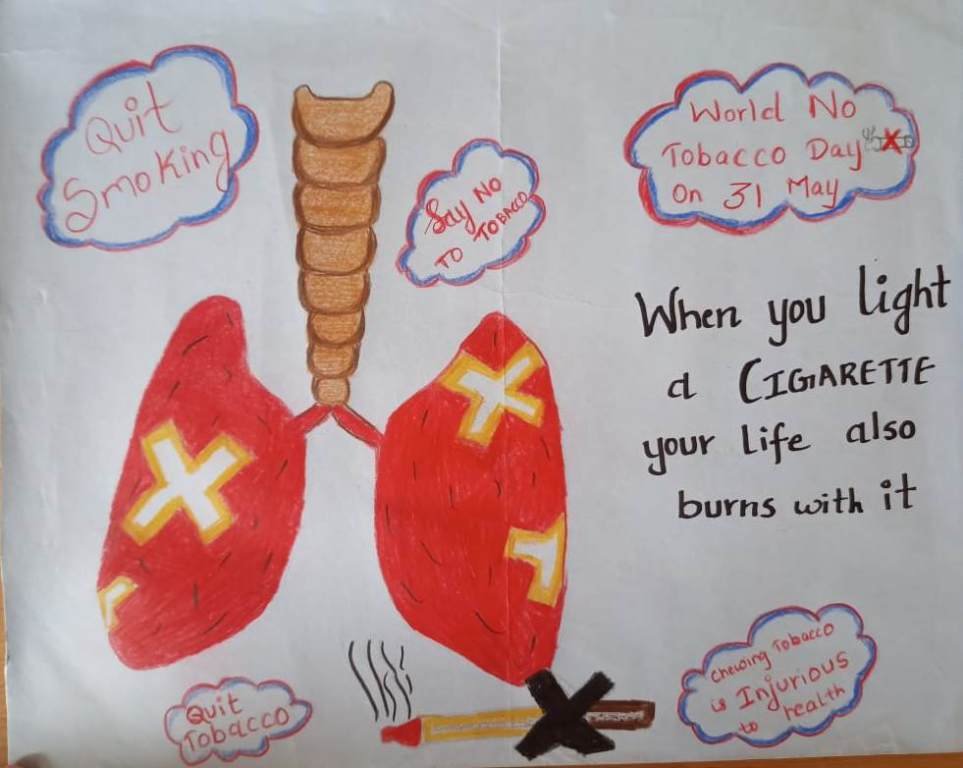 Quit
Smoking
Say NO
TO TOBACCO
World No
Tobacco Day
On 31 May
When you light
a CIGARETTE
your life also
burns with it
Quit
Tobacco
chewing Tobacco
is Injurious
to health